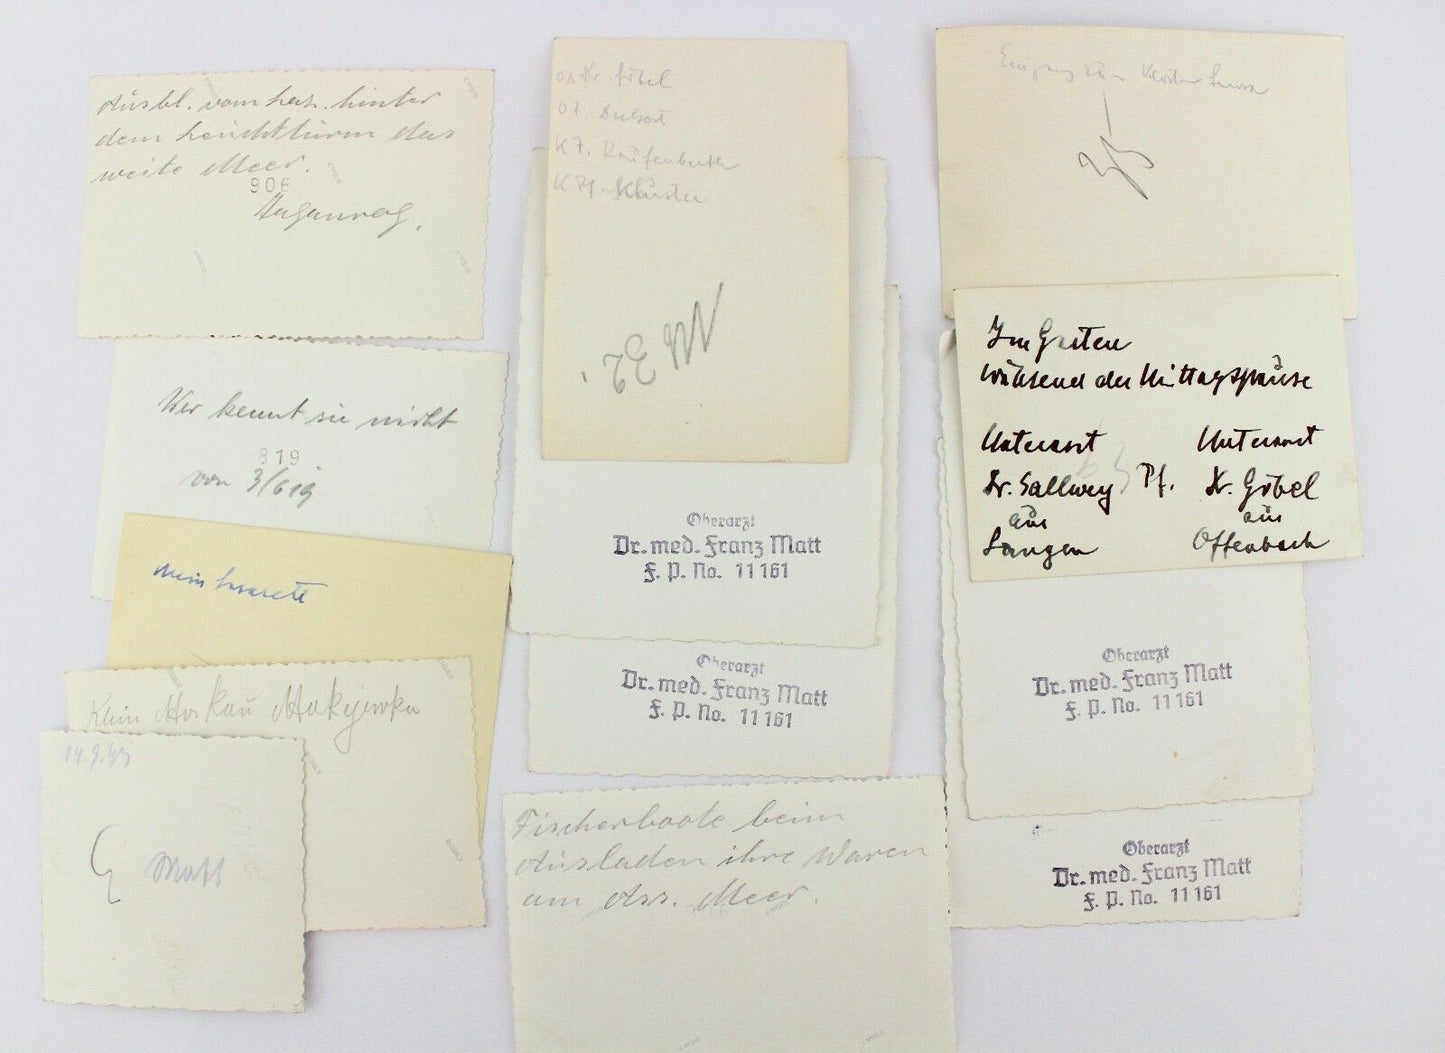 Ausbl. vom Haf. hinter
dem Leuchtturm das
weite Meer.
906
Taganrog.
Wer kennt sie nicht
819
von 3/619
mein Lazarett
Klein Moskau Makejewka
14.9.43
Matt
Dr. Göbel
Oberarzt
Dr. med. Franz Matt
F. P. No. 11161
Oberarzt
Dr. med. Franz Matt
F. P. No. 11161
Fischerboote beim
Ausladen ihre Waren
am Ass. Meer.
Eingang zum
Im Garten
während der Mittagspause
Unterarzt Unterarzt
Dr. Sallwey Pf. Dr. Göbel
aus aus
Langen Offenbach
Oberarzt
Dr. med. Franz Matt
F. P. No. 11161
Oberarzt
Dr. med. Franz Matt
F. P. No. 11161